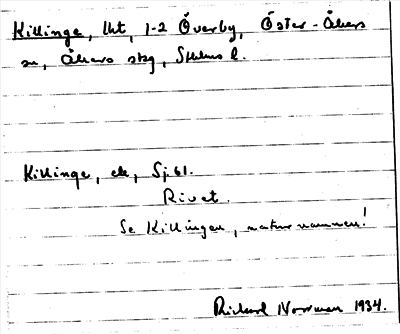 Killinge, lht, 1-2 Överby, Öster-Åkers
sn, Åkers skg, Sthlms l.
Killinge, ek, Sj. 61.
Rivet.
Se Killingen, naturnamnen!
Richard Norrman 1934.